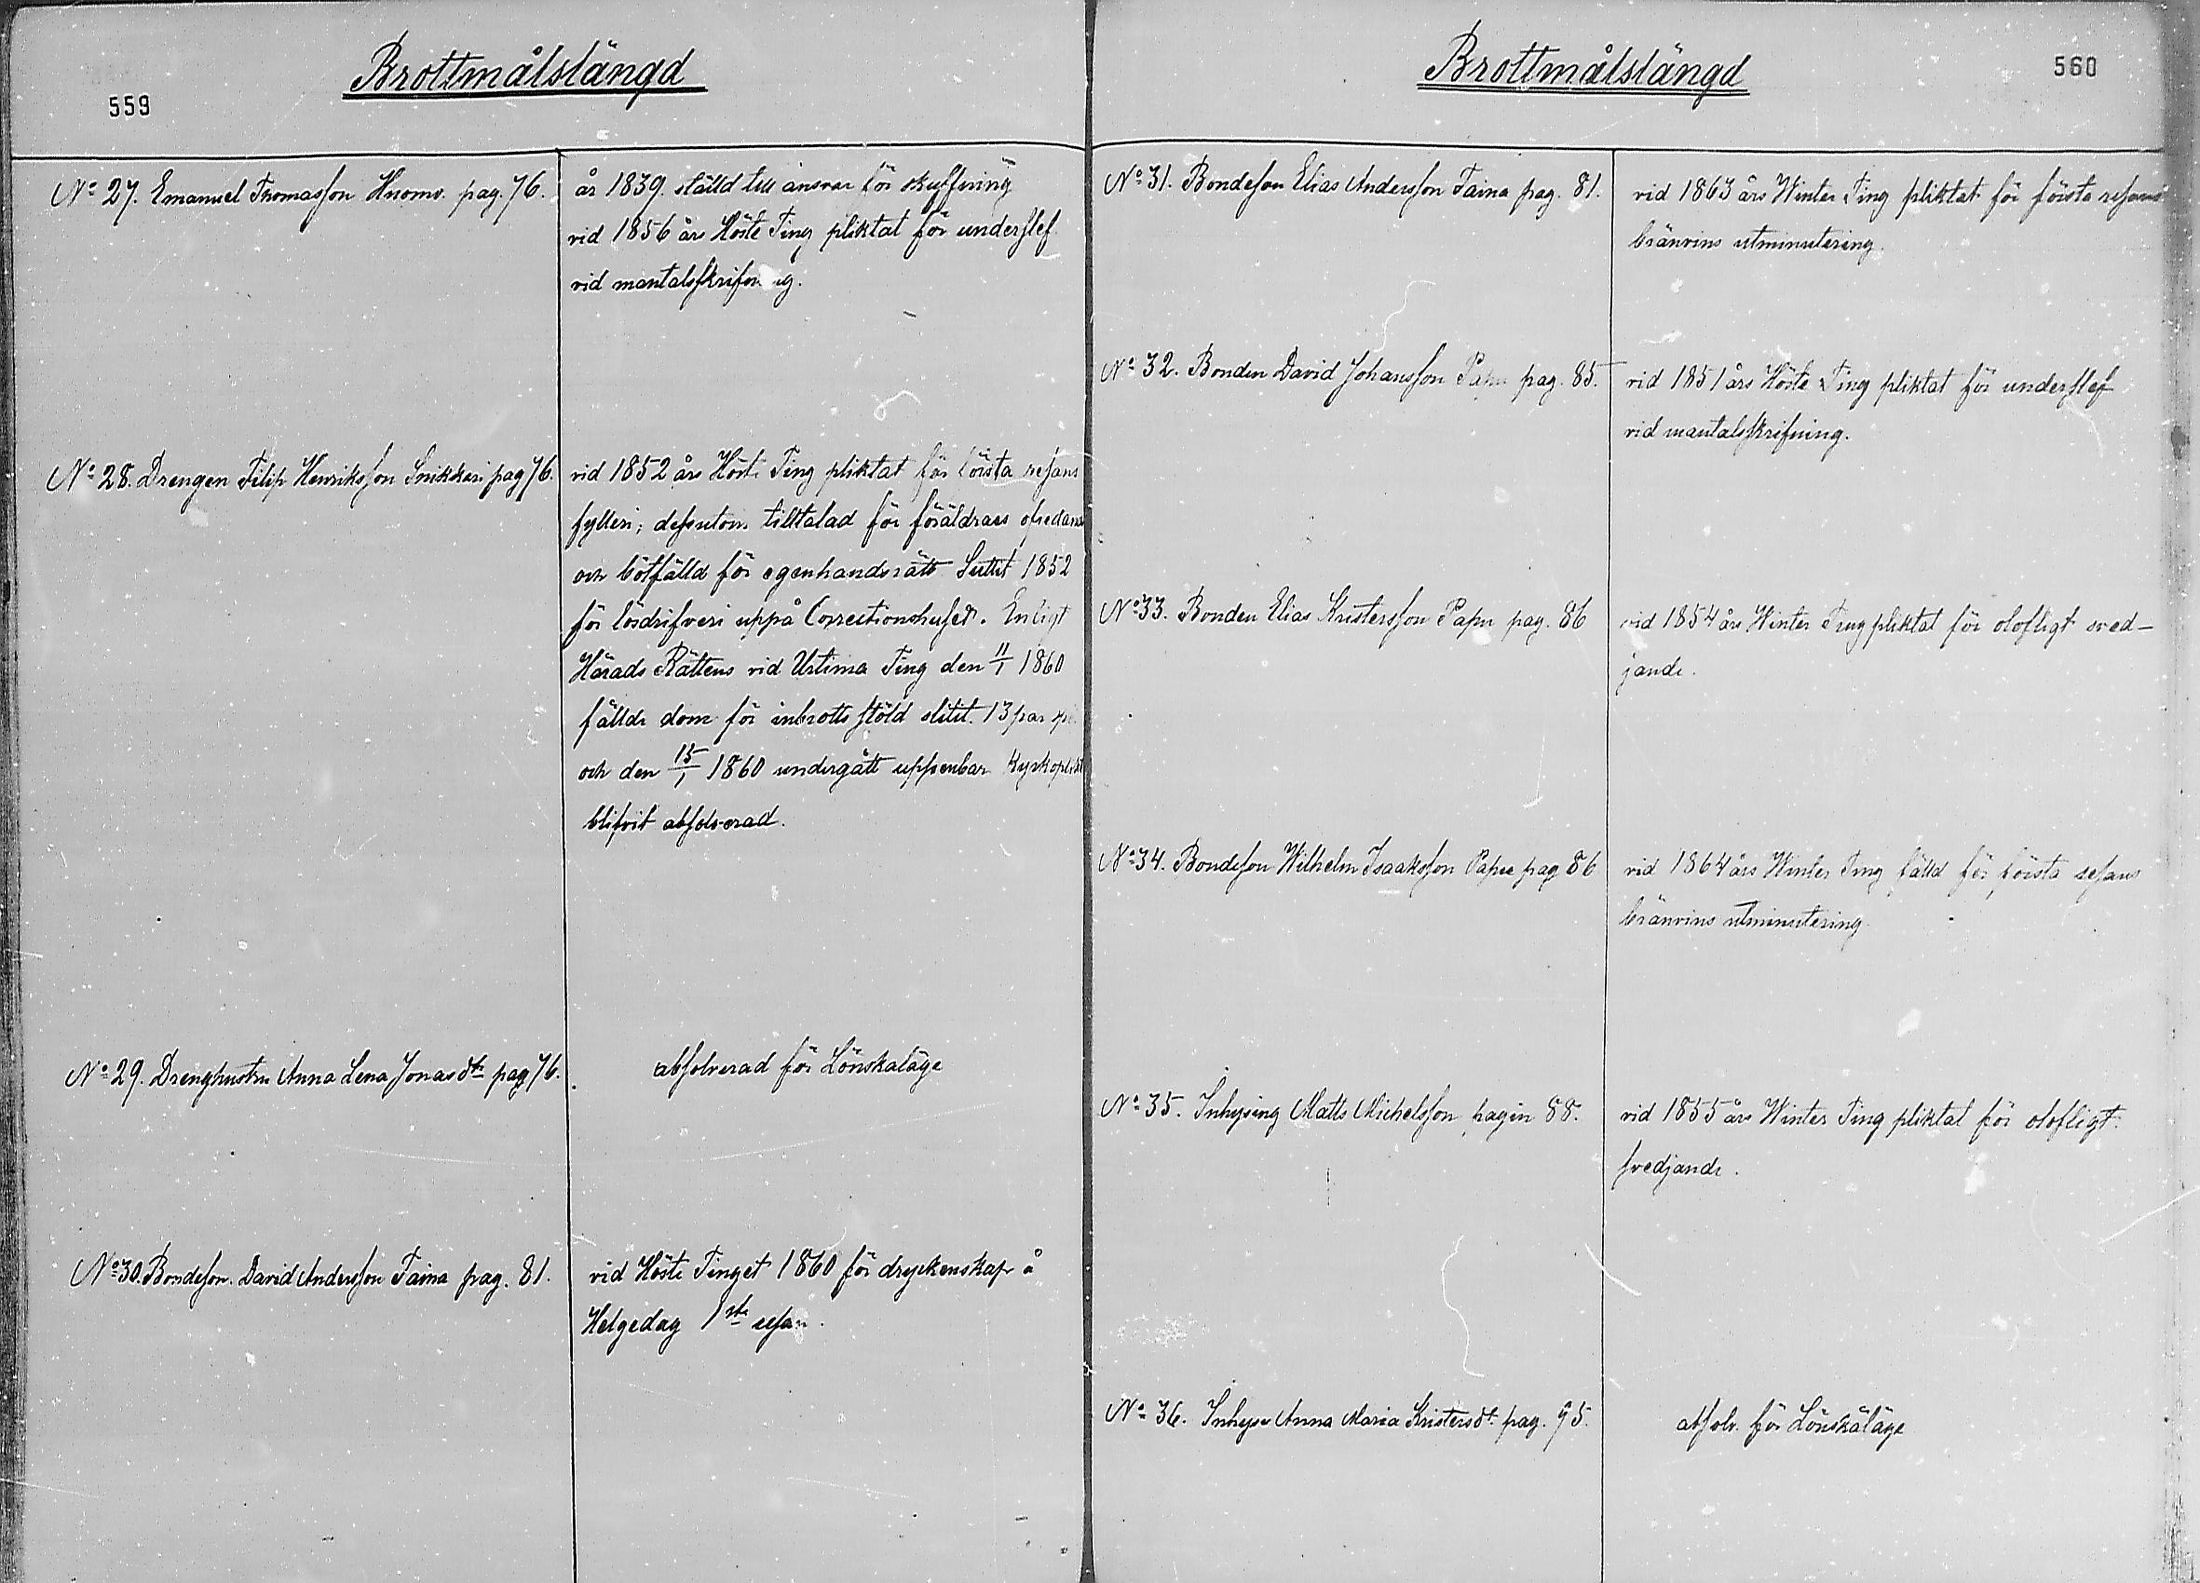 Brottmålslängd
559
No 27. Emanuel Thomasson Huomo. pag. 76.
år 1839. ställd till ansvar för skuffning
vid 1856 års Höste Ting pliktat för underslef
vid mantalsskrifning.
No 28. Drengen Filip Henriksson Snikkari pag 76.
vid 1852 års Höste Ting pliktat för första resans
fylleri; dessutom tilltalad för föräldrars ofredan
och bötfälld för egenhandsrätt Suttit 1852
för lösdrifveri uppå Correctionshuset. Enligt
Härads Rättens vid Urtima Ting den 11/1 1860
fällde dom för inbrotts stöld slitit 13 par
och den 15/1 1860 undergått uppenbar kyrkoplikt
blifvit absolverad.
No 29. Drenghustru Anna Lena Jonasdtr pag 76.
absolverad för Lönskaläge
No 30. Bondeson. David Andersson Taina pag. 81.
vid Höste Tinget 1860 för dryckenskap å
Helgedag 1sta resan.
Brottmålslängd
560
No 31. Bondeson Elias Andersson Taina pag. 81.
vid 1863 års Winter Ting pliktat för första resans
bränvins utminutering.
No 32. Bonden David Johansson Papu pag. 85.
vid 1851 års Höste Ting pliktat för underslef
vid mantalsskrifning.
No 33. Bonden Elias Kristersson Papu pag. 86
vid 1854 års Winter Ting pliktat för olofligt sved-
jande.
No 34. Bondeson Wilhelm Isaaksson Papu pag 86
vid 1864 års Winter Ting fälld för första resans
bränvins utminutering
No 35. Inhysing Matts Michelsson pagin 88.
vid 1855 års Winter Ting pliktat för olofligt
svedjande.
No 36. Inhyses Anna Maria Kristersdt. pag. 95.
absolv. för Lönskaläge